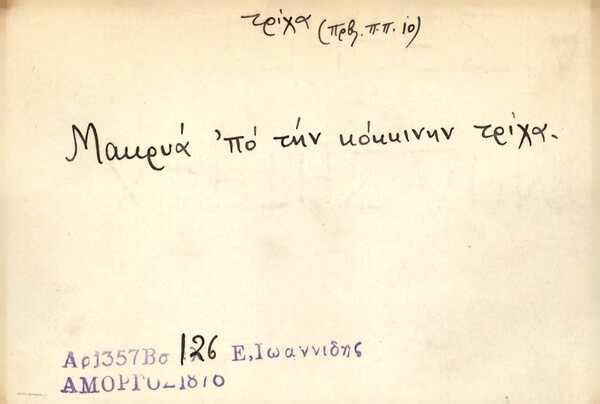 τρίχα (πρβ. π.π. 10)
Μακρυά 'πό τήν κόκκινην τρίχα.
Αρ1357Βσ 126 Ε,Ιωαννιδης
ΑΜΟΡΓΟΣ1876